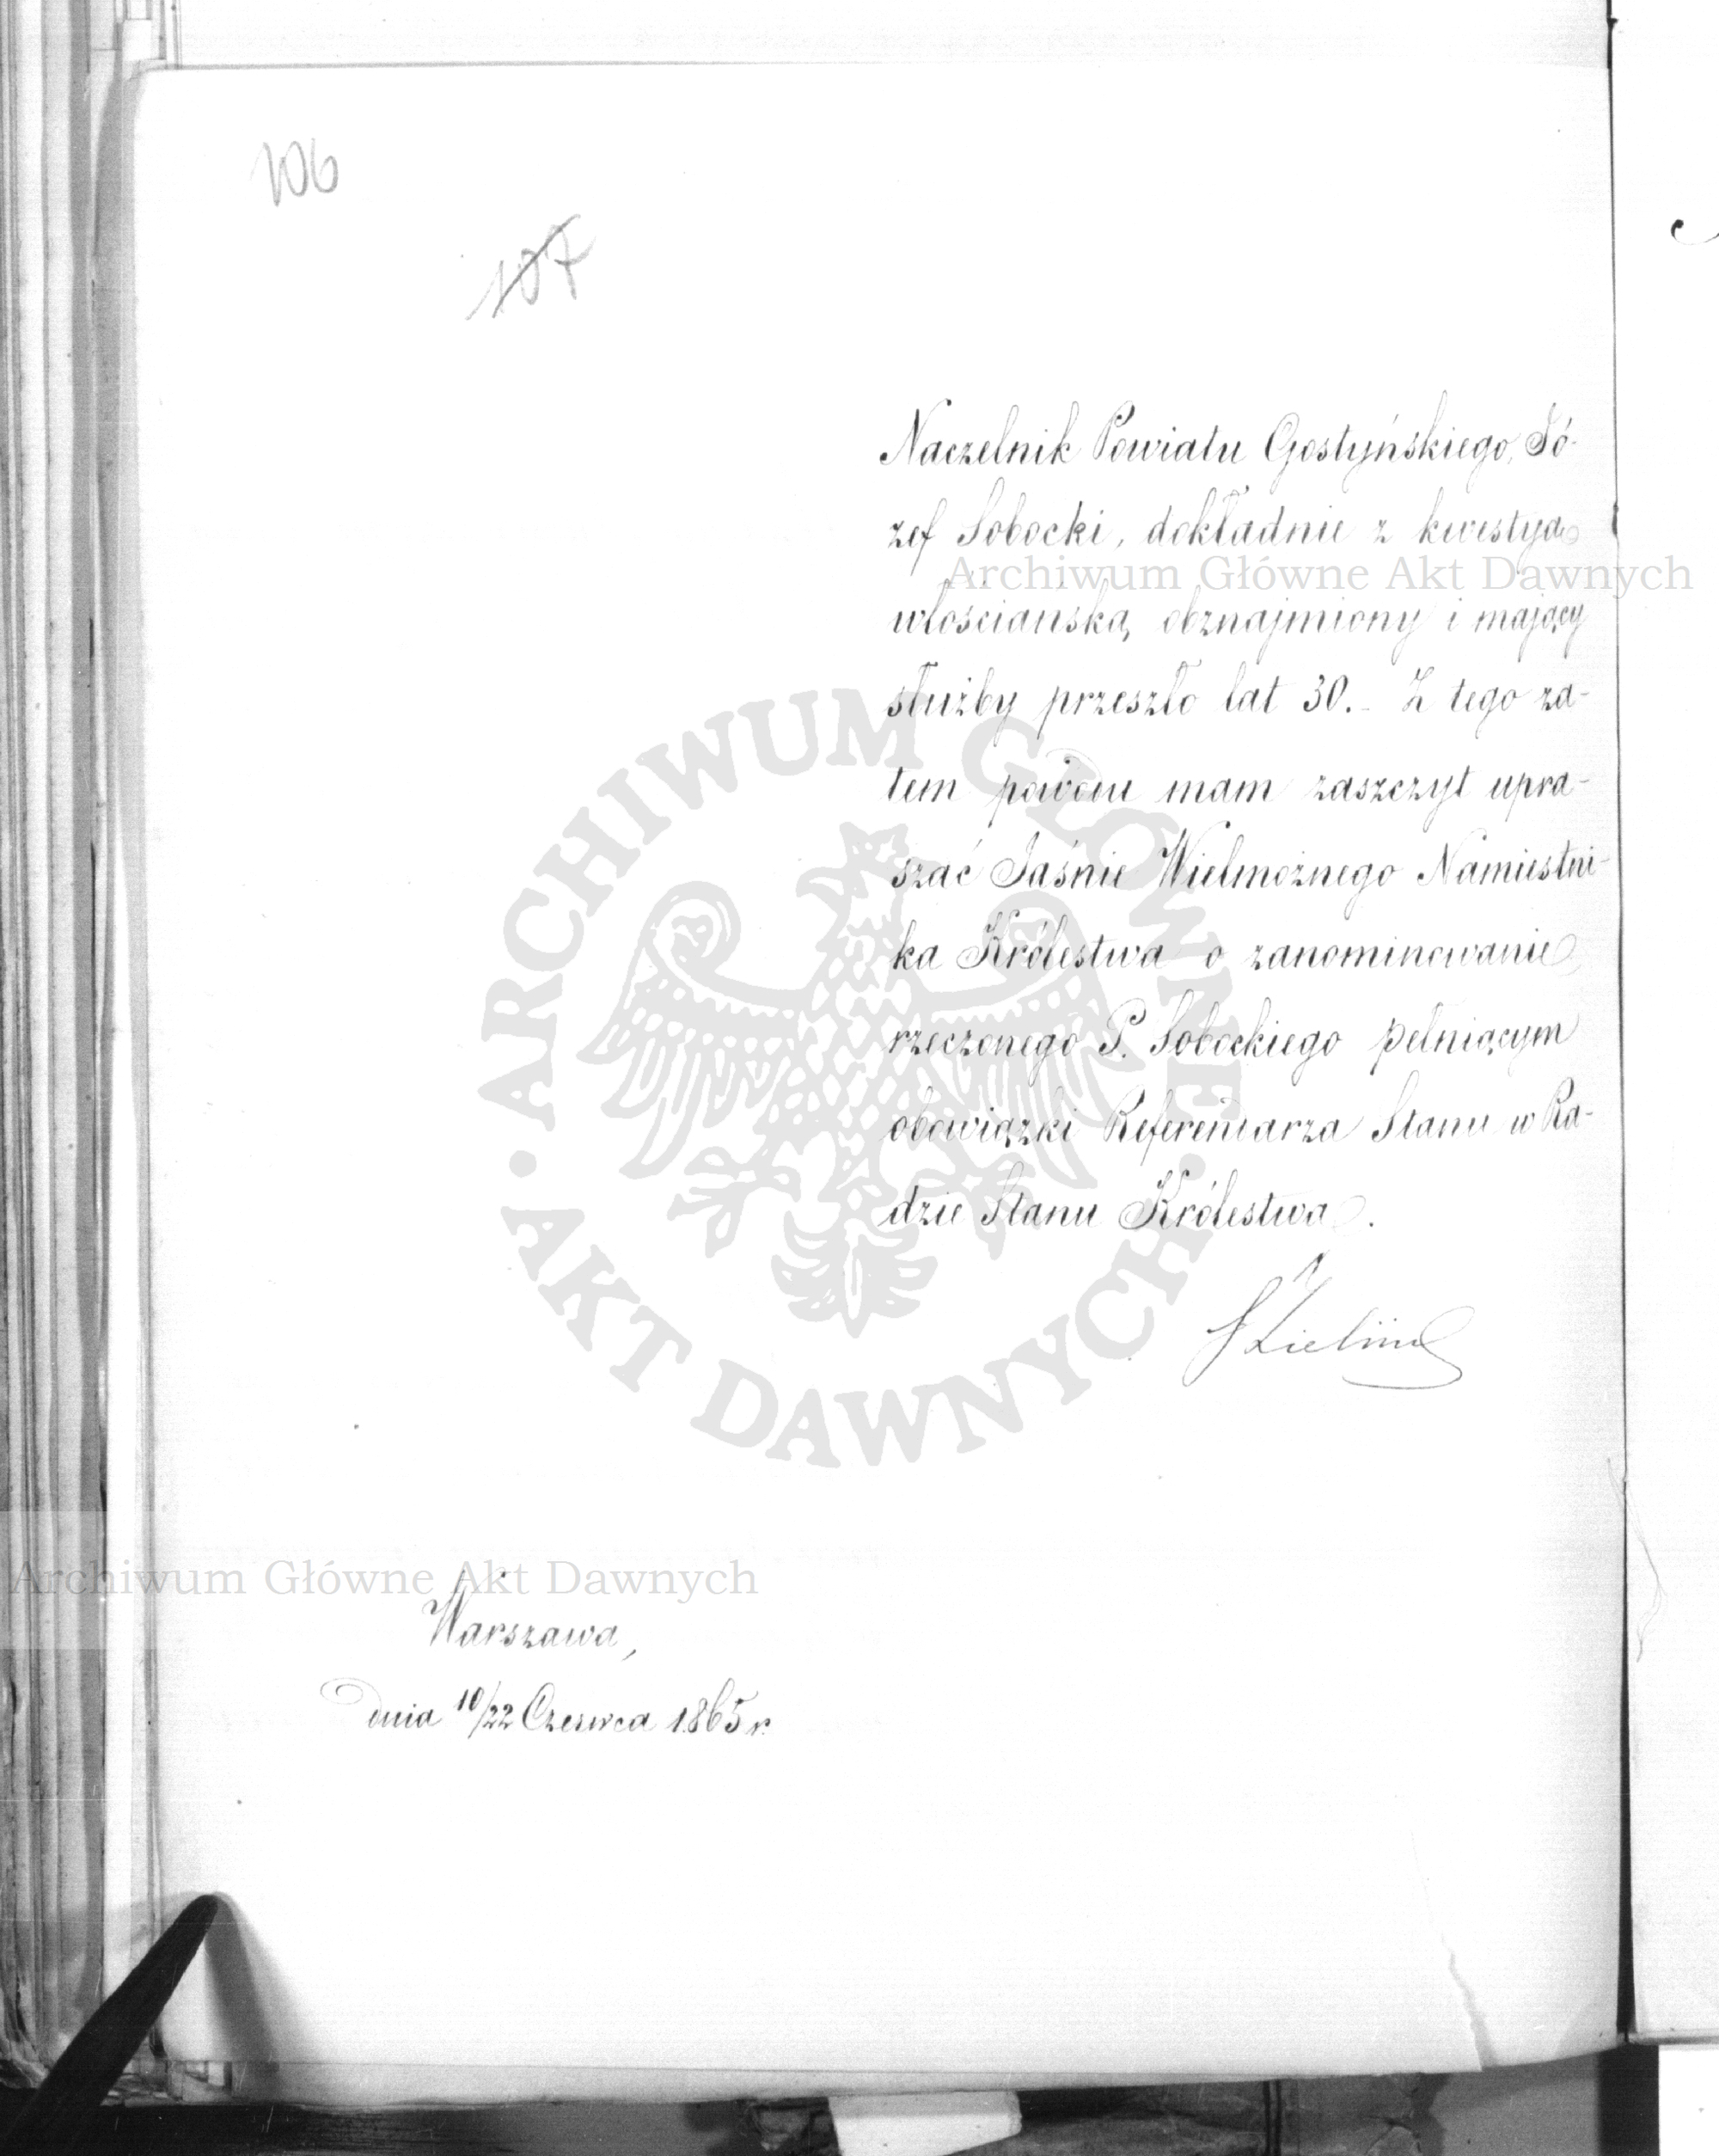 106
107
Naczelnik Powiatu Gostyńskiego, Jó-
zef Sobocki, dokładnie z kwestyą
włościańską obznajmiony i mający
służby przeszło lat 30. - Z tego za-
tem powodu mam zaszczyt upra-
szać Jaśnie Wielmożnego Namiestni-
ka Królestwa o zanominowanie
rzeczonego P. Sobockiego pełniącym
obowiązki Referendarza Stanu w Ra-
dzie Stanu Królestwa.
Warszawa,
dnia 10/22 Czerwca 1865 r.
Archiwum Główne Akt Dawnych
Archiwum Główne Akt Dawnych
ARCHIWUM GŁÓWNE · AKT DAWNYCH ·